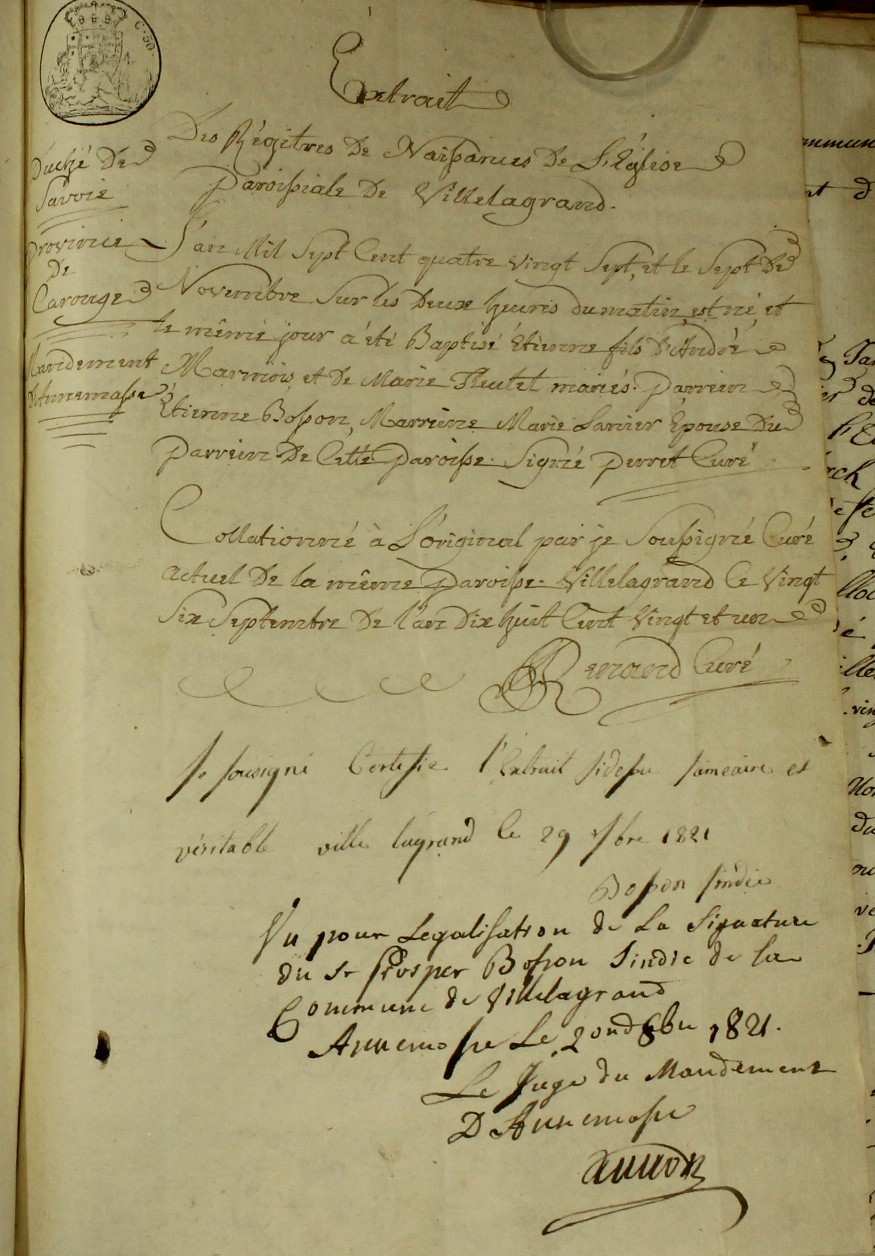 C. 50.
Extrait
Des Régitres De Naissances De L'Église
Paroissiale De Villelagrand.
Duché De
Savoie
Province
De
Carouge
Mandement
D'Annemasse
L'an Mil Sept Cent quatre vingt Sept, et le Sept De
Novembre Sur les Deux heures du matin est né et
le même jour a été Baptisé Étienne fils D'André
Marmoix et De Marie mariés. Parrein
Étienne Bosson, Marreine Marie Épouse Du
parrein De Cette Paroisse. Signé Perret Curé
Collationné à L'original par je Soussigné Curé
actuel De la même Paroisse. Villelagrand Ce Vingt
Six Septembre De l'an Dix huit Cent Vingt et un
Curé
Je sousigné Certifie l'Extrait sidesu simcaire et
véritable ville lagrand le 29 7bre 1821
Bosson sindic
Vu pour Legalisation de La Signature
du Sr Prosper Bosson Sindic de la
Commune de Villelagrand
Annemasse Le 2ond 8bre 1821.
Le Juge du Mandement
D'Annemasse